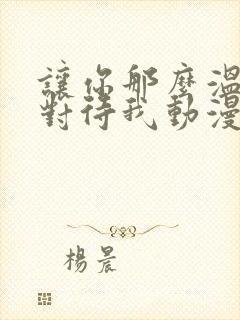 讓你那麼溫
對待我動漫
楊晨